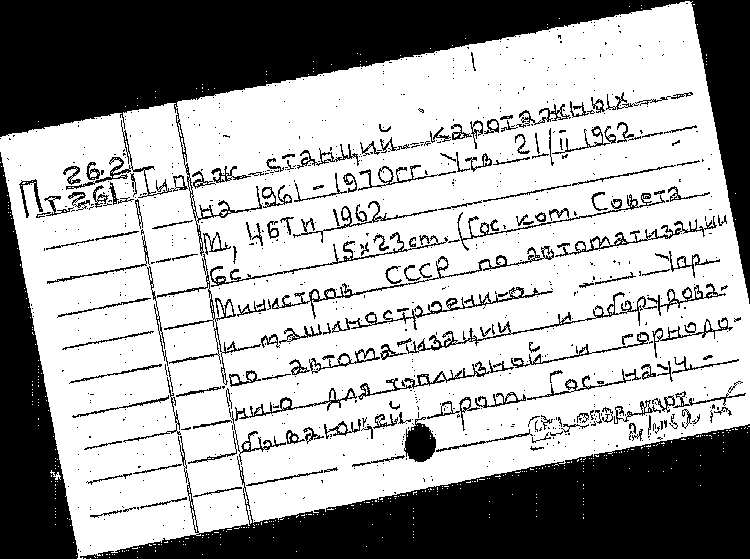 26.2
Пт.261 Типаж станций каротажных
на 1961-1970гг. Утв. 21/II 1962.
М., ЦБТИ, 1962.
6с. 15х23см. (Гос. ком. Совета
Министров СССР по автоматизации
и машиностроению. Упр.
по автоматизации и оборудова-
нию для топливной и горнодо-
бывающей пром. Гос. науч.-
См. опор. карт.